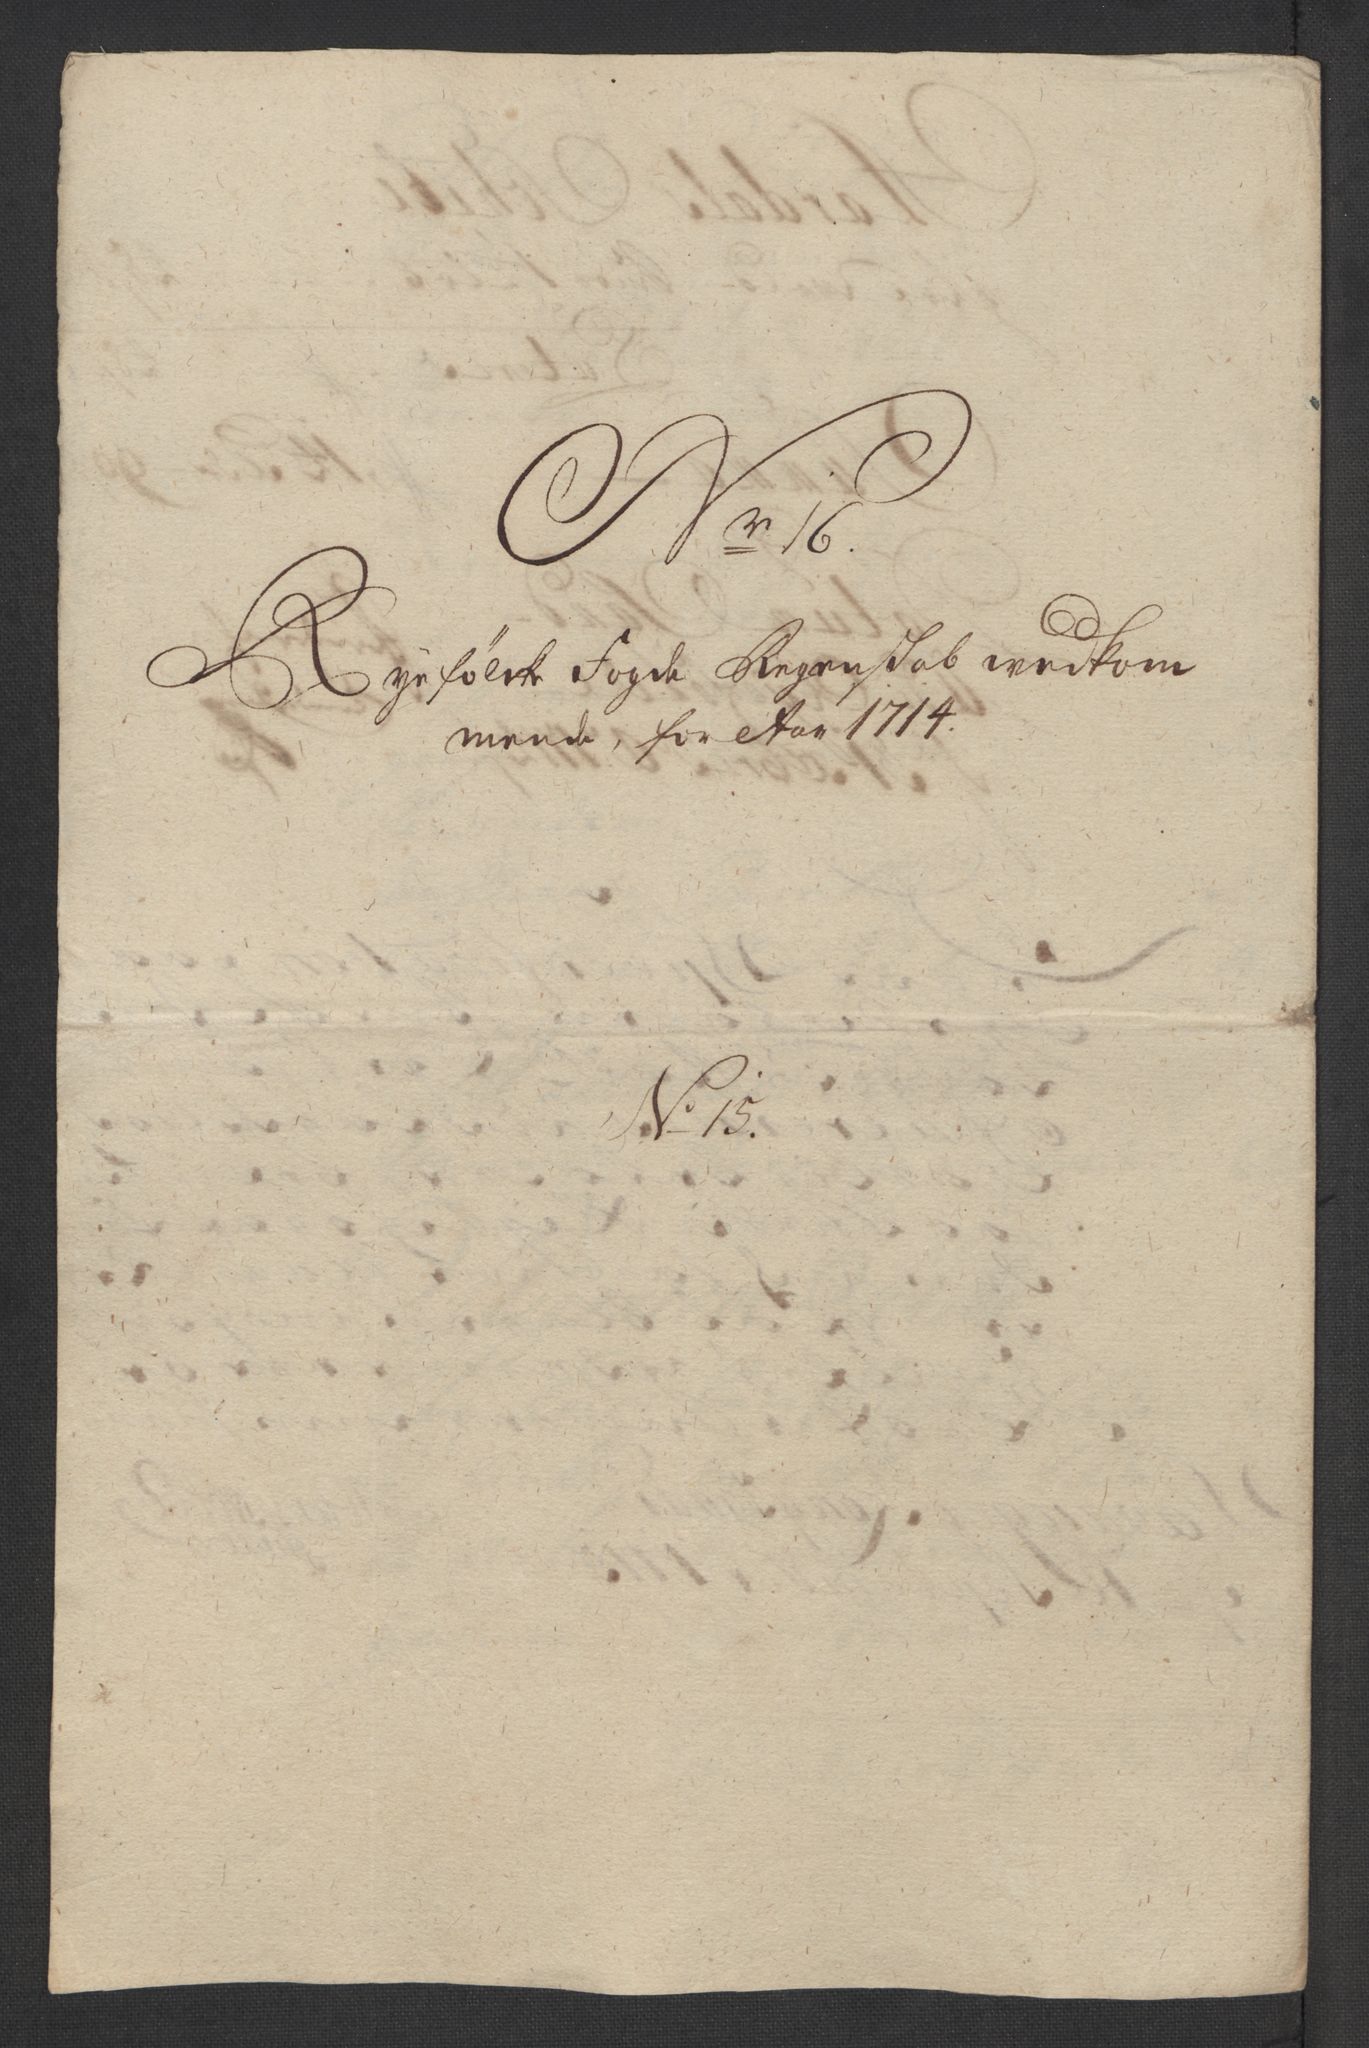 Nr 16.
Ryefölcke Fogde Regenskab wedkom
mende, for Aar 1714.
No 15.